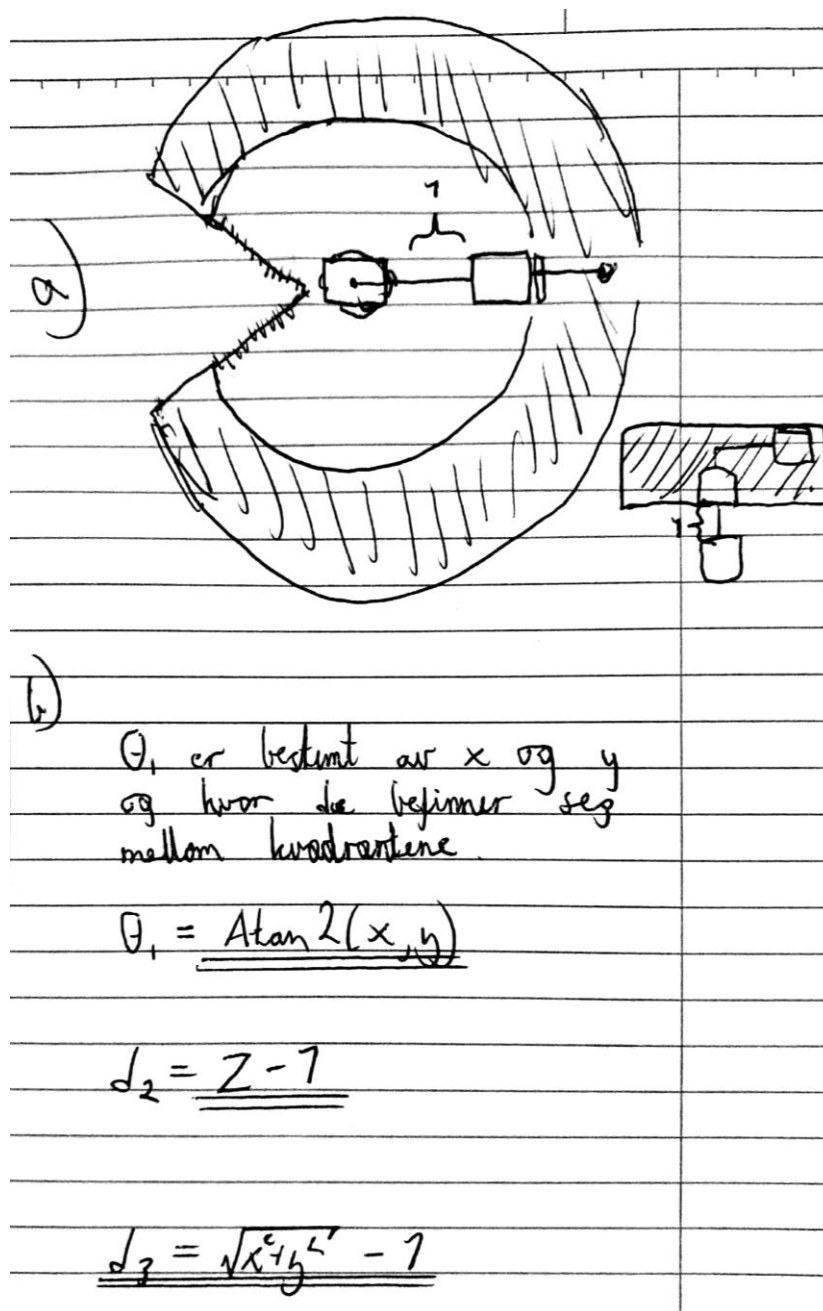 a)
1
1
b)
θ₁ er bestemt av x og y
og hvor de befinner seg
mellom kvadrantene.
θ₁ = Atan2(x,y)
d₂ = Z - 1
d₃ = √x²+y² - 1